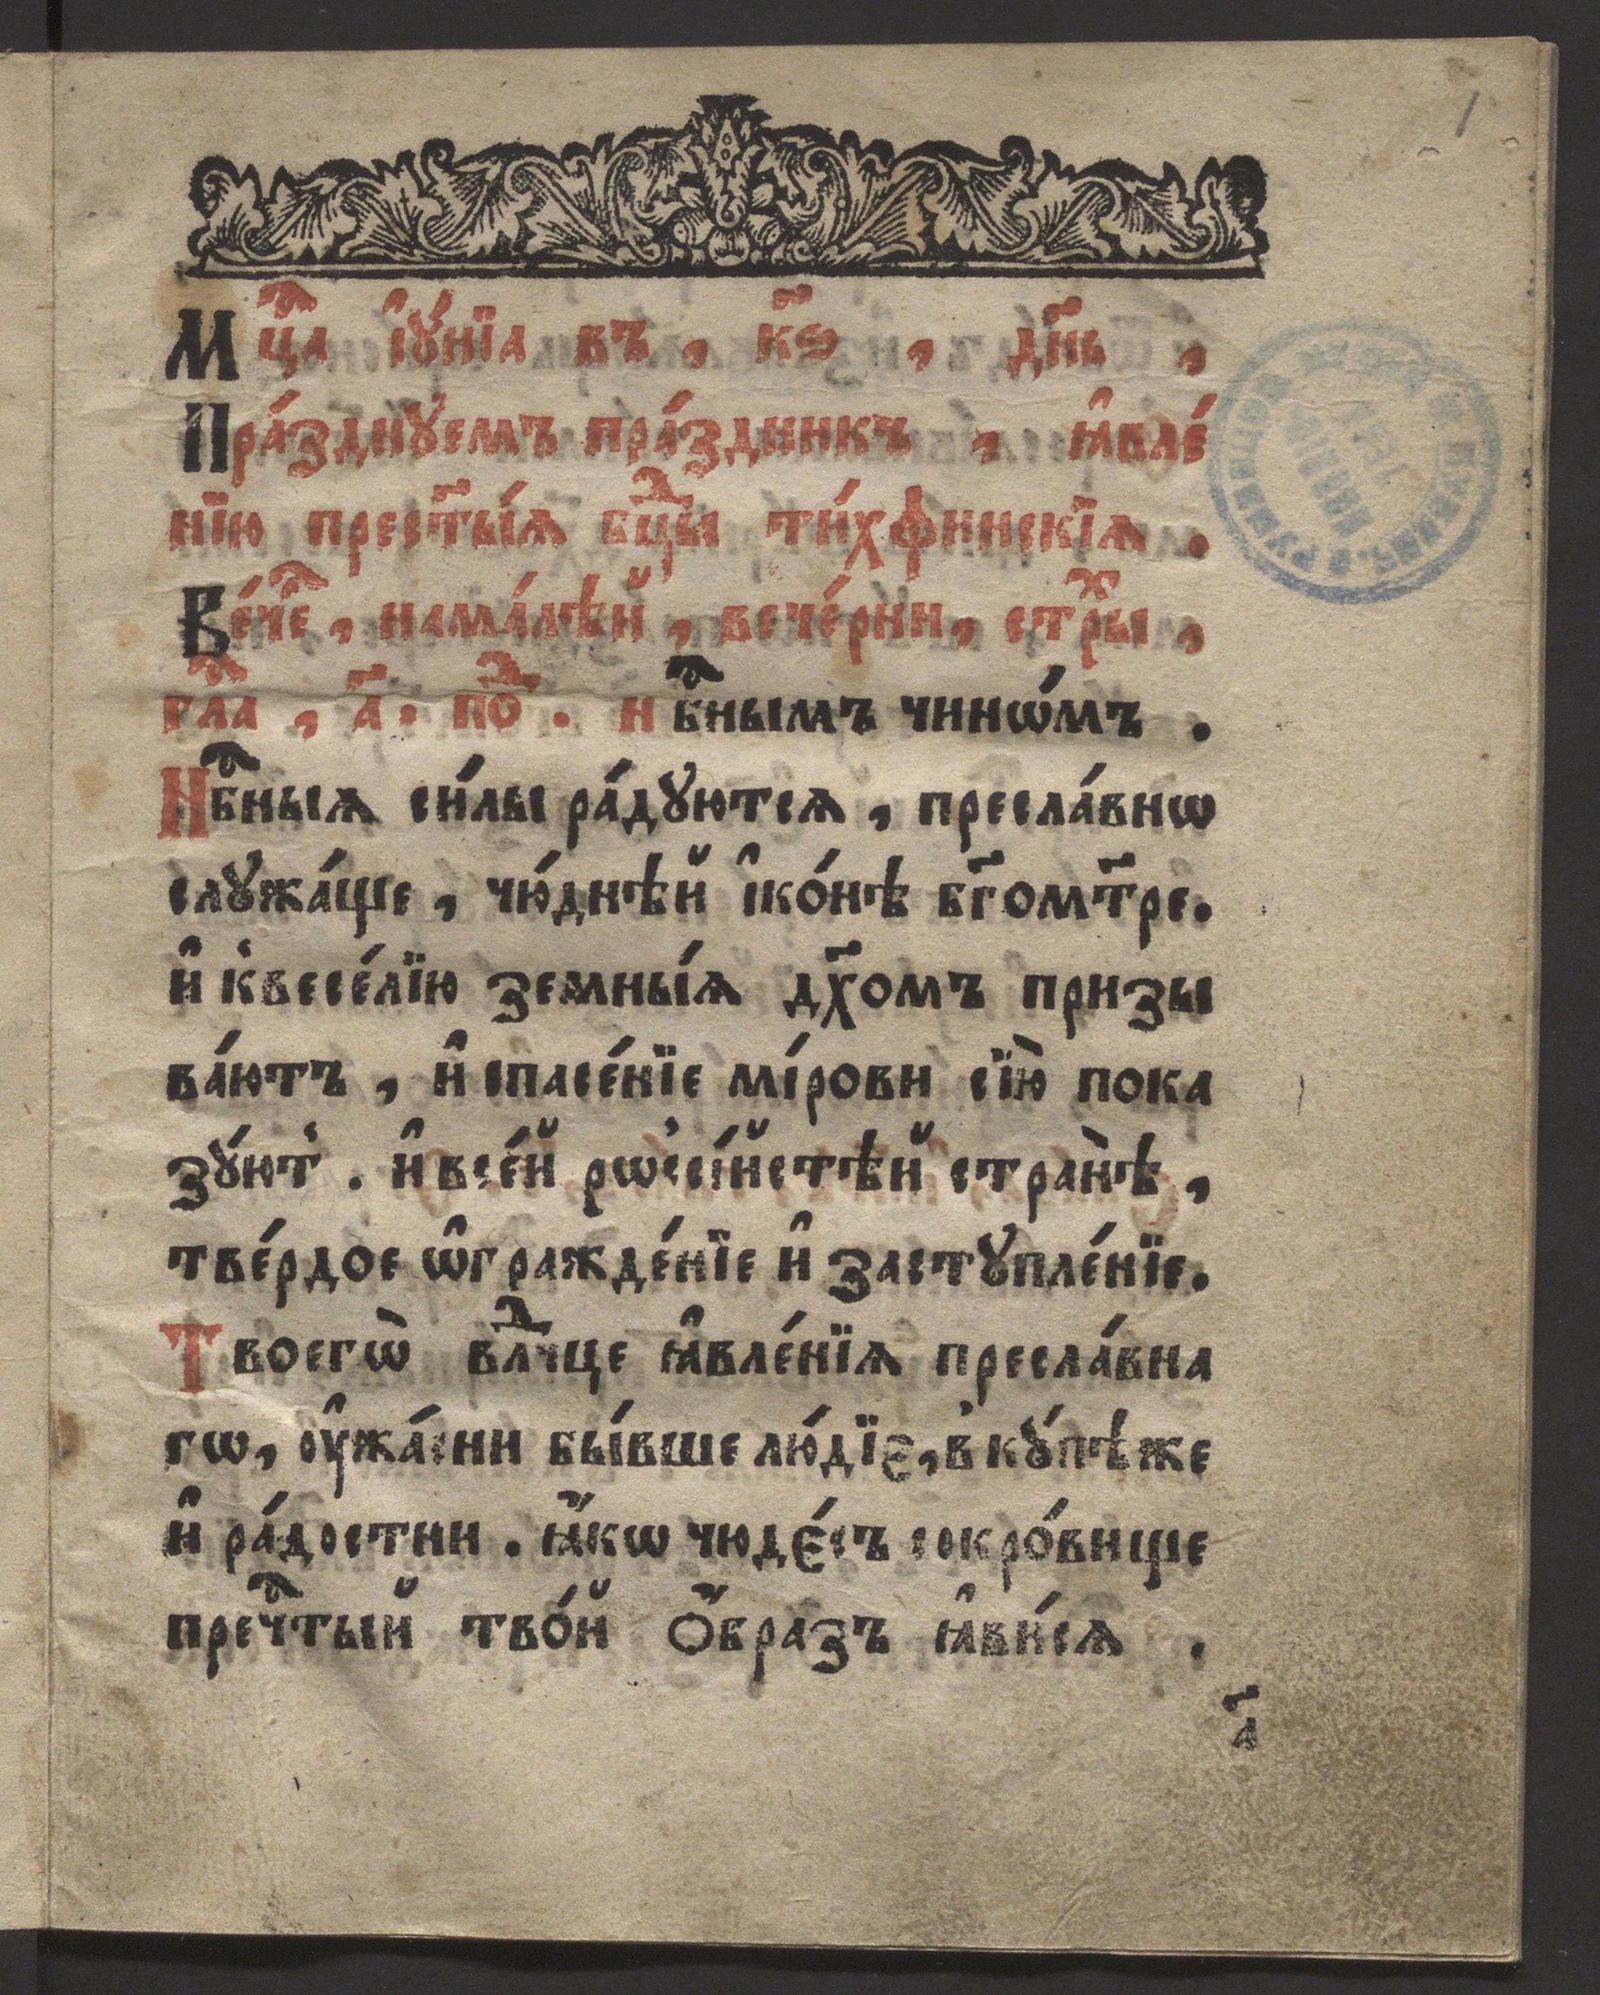 1
Мцⷭ҇а і҆ꙋ́нїа въ , к҃ѕ , д҃нь ,
Пра́зднꙋемъ пра́здникъ , ꙗ҆вле́
нїю прест҃ы́ѧ бцⷣы ти́хфинскїѧ .
Ве́чеⷭ҇ , нама́лѣй , вече́рни, стⷯры ,
глⷭ҇а , а҃ . поⷣ . нбⷭ҇нымъ чинѡ́мъ .
Нбⷭ҇ныѧ си́лы ра́дꙋютсѧ , пресла́внѡ
слꙋжа́ще , чю́днѣй і҆ко́нѣ бг҃омт҃ре.
и҆ к̾весе́лїю земны́ѧ дх҃омъ призы
ва́ютъ , и҆ спасе́нїе мі́рови сїю̀ пока
зꙋ́ют̾ . и҆ все́й рѡс̾сі́йстѣй стран̀ѣ ,
тве́рдое ѡ҆гражде́нїе и҆ застꙋпле́нїе.
Твоегѡ̀ влⷣчце ꙗ҆вле́нїѧ пресла́вна
гѡ, ѹ҆жа́сни бы́вше лю́дїє, в̾кꙋ́пѣ же
и҆ ра́достни . ꙗ҆́кѡ чюдє́съ сокро́вище
пречⷭ҇тый тво́й ѻ҆́бразъ ꙗ҆ви́сѧ .
а҃